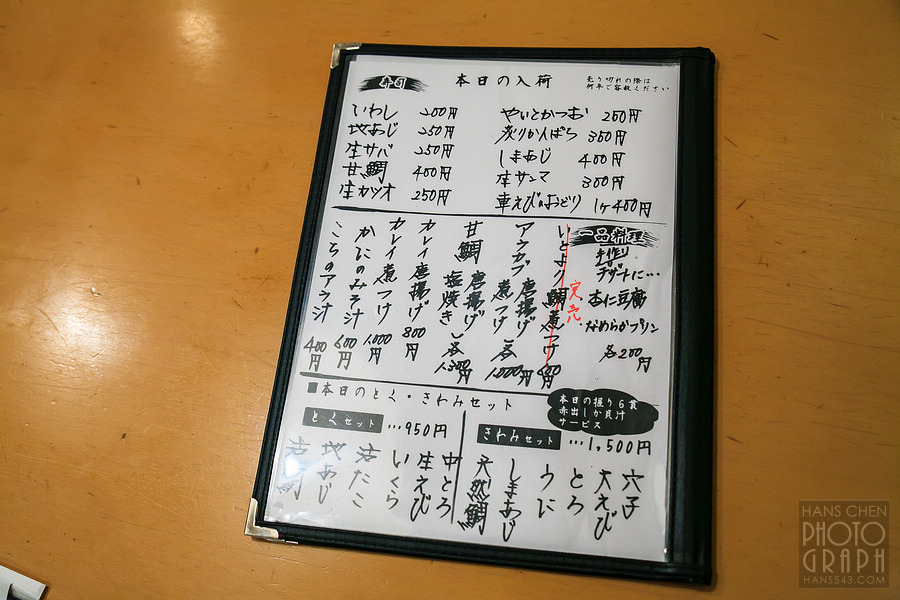 本日の入荷
売り切れの際は
何卒ご容赦ください
いわし 200円
地あじ 250円
生サバ 250円
甘鯛 400円
生カツオ 250円
やいとかつお 250円
炙りかんぱち 350円
しまあじ 400円
生サンマ 300円
車えびおどり 1ケ400円
一品料理
手作り
デザートに…
杏仁豆腐
なめらかプリン
各200円
完売
いとより鯛煮つけ 600円
アラカブ 唐揚げ 煮つけ 各1,000円
甘鯛 唐揚げ 塩焼き 各1,300円
カレイ唐揚げ 800円
カレイ煮つけ 1,000円
かにのみそ汁 600円
こちのアラ汁 400円
■本日のとく・きわみセット
本日の握り6貫
赤出しか貝汁
サービス
とくセット …950円
中とろ
生えび
いくら
活たこ
地あじ
活鯛
きわみセット …1,500円
穴子
大えび
とろ
うに
しまあじ
天然鯛
HANS CHEN
PHOTO
GRAPH
HANS543.COM